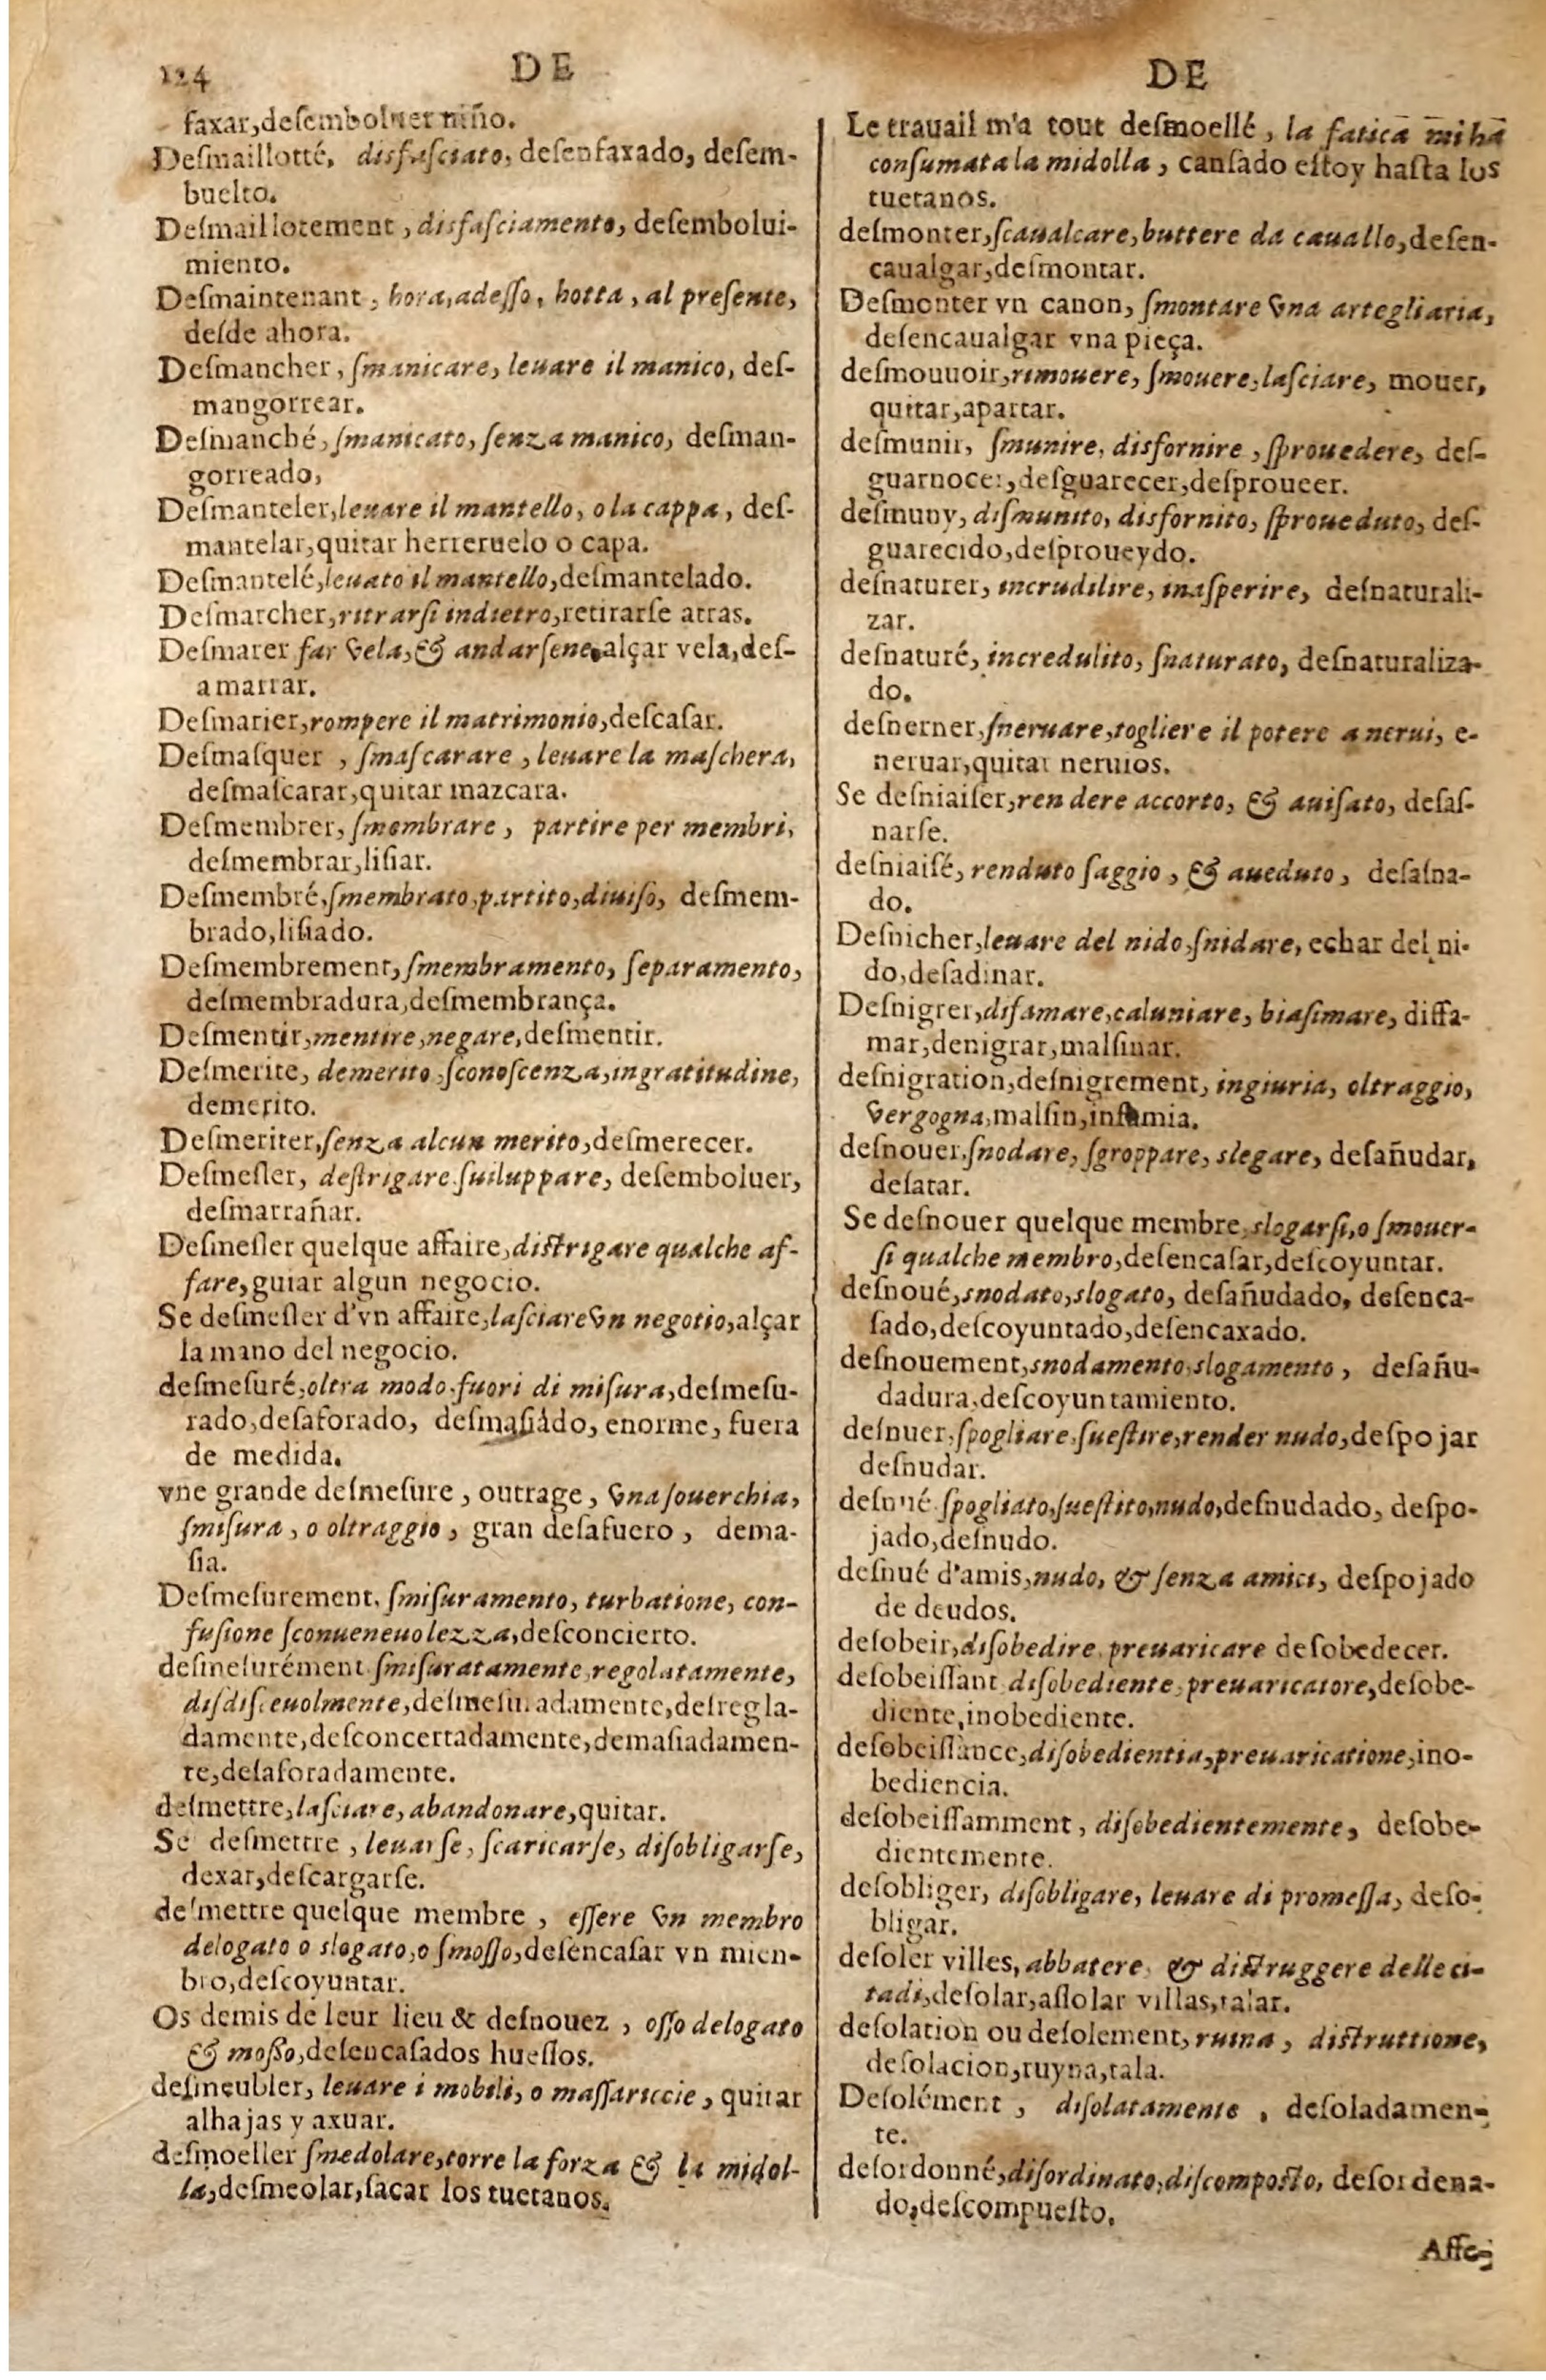 124
DE
faxar,deſemboluer niño.
Deſmaillotté, disfaſciato, deſenfaxado, deſem-
buelto.
Deſmaillotement, disfaſciamento, deſembolui-
miento.
Deſmaintenant, hora,adeſſo, hotta, al preſente,
deſde ahora.
Deſmancher, ſmanicare, leuare il manico, deſ-
mangorrear.
Deſmanché, ſmanicato, ſenza manico, deſman-
gorreado,
Deſmanteler,leuare il mantello, o la cappa, deſ-
mantelar,quitar herreruelo o capa.
Deſmantelé,leuato il mantello,deſmantelado.
Deſmarcher,ritrarſi indietro,retirarſe atras.
Deſmarer far vela,& andarſene,alçar vela,deſ-
amarrar.
Deſmarier,rompere il matrimonio,deſcaſar.
Deſmaſquer, ſmaſcarare, leuare la maſchera,
deſmaſcarar,quitar mazcara.
Deſmembrer, ſmembrare, partire per membri,
deſmembrar,liſiar.
Deſmembré,ſmembrato,partito,diuiſo, deſmem-
brado,liſiado.
Deſmembrement,ſmembramento, ſeparamento,
deſmembradura,deſmembrança.
Deſmentir,mentire,negare,deſmentir.
Deſmerite, demerito,ſconoſcenza,ingratitudine,
demerito.
Deſmeriter,ſenza alcun merito,deſmerecer.
Deſmeſler, deſtrigare.ſuiluppare, deſemboluer,
deſmarrañar.
Deſmeſler quelque affaire,diſtrigare qualche af-
fare,guiar algun negocio.
Se deſmeſler d'vn affaire,laſciare vn negotio,alçar
la mano del negocio.
deſmeſuré,oltra modo,fuori di miſura,deſmeſu-
rado,deſaforado, deſmaſiado, enorme, fuera
de medida.
vne grande deſmeſure, outrage, vna ſouerchia,
ſmiſura, o oltraggio, gran deſafuero, dema-
ſia.
Deſmeſurement, ſmiſuramento, turbatione, con-
fuſione ſconueneuolezza,deſconcierto.
deſmeſurément ſmiſuratamente,regolatamente,
diſdiſceuolmente,deſmeſuradamente,deſregla-
damente,deſconcertadamente,demaſiadamen-
te,deſaforadamente.
deſmettre,laſciare, abandonare,quitar.
Se deſmettre, leuarſe, ſcaricarſe, diſobligarſe,
dexar,deſcargarſe.
deſmettre quelque membre, eſſere vn membro
delogato o slogato,o ſmoſſo,deſencaſar vn miem-
bro,deſcoyuntar.
Os demis de leur lieu & deſnouez, oſſo delogato
& moſſo,deſencaſados hueſſos.
deſmeubler, leuare i mobili, o maſſariccie, quitar
alhajas y axuar.
deſmoeller ſmedolare,torre la forza & la midol-
la,deſmeolar,ſacar los tuetanos.
DE
Le trauail m'a tout deſmoellé, la faticā mihā
conſumata la midolla, canſado eſtoy haſta los
tuetanos.
deſmonter,ſcaualcare,buttere da cauallo,deſen-
caualgar,deſmontar.
Deſmonter vn canon, ſmontare vna artegliaria,
deſencaualgar vna pieça.
deſmouuoir,rimouere, ſmouere,laſciare, mouer,
quitar,apartar.
deſmunir, ſmunire, disfornire, ſprouedere, deſ-
guarnocer,deſguarecer,deſproueer.
deſmuny, diſmunito, disfornito, ſproueduto, deſ-
guarecido,deſproueydo.
deſnaturer, incrudilire, inaſperire, deſnaturali-
zar.
deſnaturé, incredulito, ſnaturato, deſnaturaliza-
do.
deſnerner,ſneruare,togliere il potere a nerui, e-
neruar,quitar neruios.
Se deſniaiſer,rendere accorto, & auiſato, deſaſ-
narſe.
deſniaiſé, renduto ſaggio, & aueduto, deſaſna-
do.
Deſnicher,leuare del nido,ſnidare, echar del ni-
do,deſadinar.
Deſnigrer,difamare,caluniare, biaſimare, diffa-
mar,denigrar,malſinar.
deſnigration,deſnigrement, ingiuria, oltraggio,
vergogna,malſin,infamia.
deſnouer,ſnodare, ſgroppare, slegare, deſañudar,
deſatar.
Se deſnouer quelque membre,slogarſi,o ſmouer-
ſi qualche membro,deſencaſar,deſcoyuntar.
deſnoué,snodato,slogato, deſañudado, deſenca-
ſado,deſcoyuntado,deſencaxado.
deſnouement,snodamento,slogamento, deſañu-
dadura,deſcoyuntamiento.
deſnuer,ſpogliare,ſueſtire,render nudo,deſpojar
deſnudar.
deſnué ſpogliato,ſueſtito,nudo,deſnudado, deſpo-
jado,deſnudo.
deſnué d'amis,nudo, & ſenza amici, deſpojado
de deudos.
deſobeir,diſobedire preuaricare deſobedecer.
deſobeiſſant diſobediente,preuaricatore,deſobe-
diente,inobediente.
deſobeiſſance,diſobedientia,preuaricatione,ino-
bediencia.
deſobeiſſamment, diſobedientemente, deſobe-
dientemente.
deſobliger, diſobligare, leuare di promeſſa, deſo-
bligar.
deſoler villes,abbatere & diſtruggere delle ci-
tadi,deſolar,aſſolar villas,talar.
deſolation ou deſolement,ruina, diſtruttione,
deſolacion,ruyna,tala.
Deſolément, diſolatamente, deſoladamen-
te.
deſordonné,diſordinato,diſcompoſto, deſordena-
do,deſcompueſto.
Aſſe-